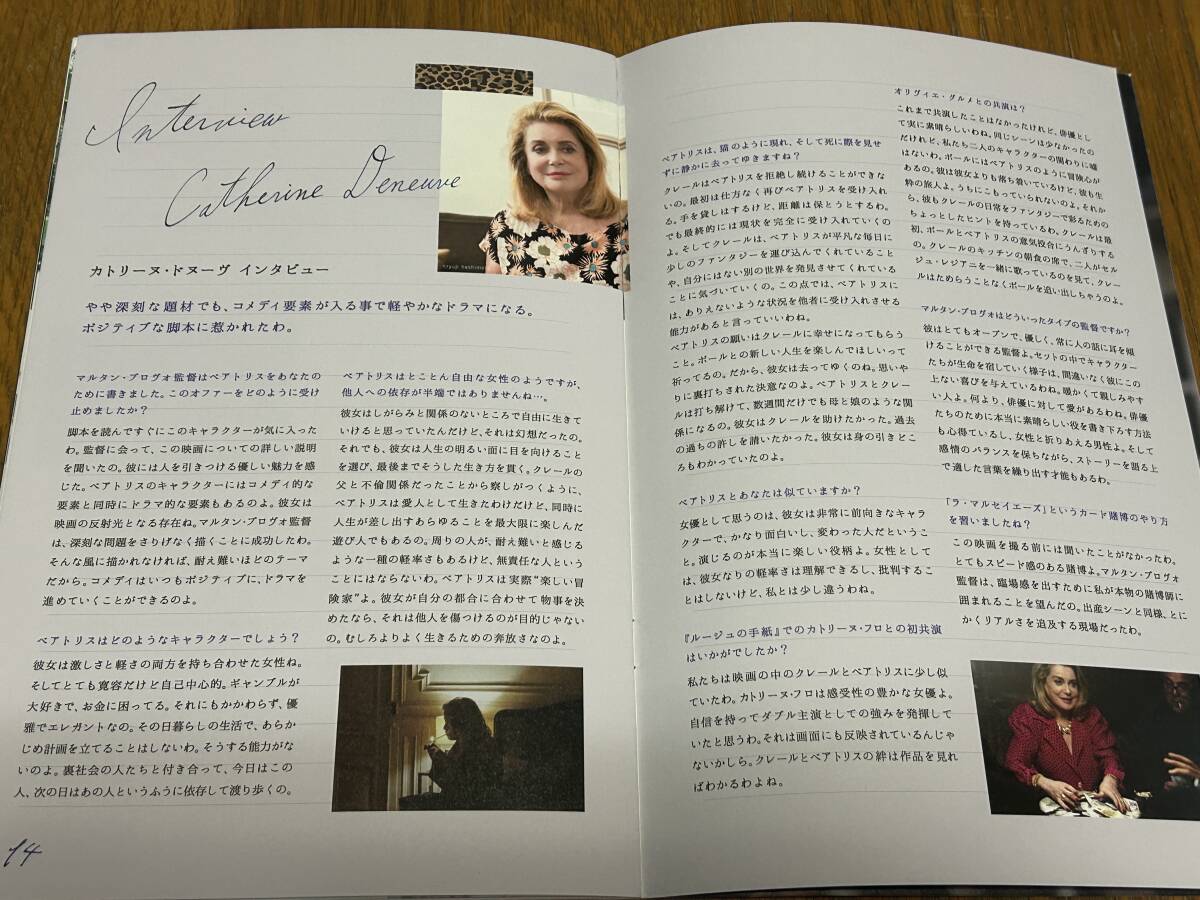 Interview
Catherine Deneuve
カトリーヌ・ドヌーヴ インタビュー
やや深刻な題材でも、コメディ要素が入る事で軽やかなドラマになる。
ポジティブな脚本に惹かれたわ。
マルタン・プロヴォ監督はベアトリスをあなたの
ために書きました。このオファーをどのように受け
止めましたか?
脚本を読んですぐにこのキャラクターが気に入った
わ。監督に会って、この映画についての詳しい説明
を聞いたの。彼には人を引きつける優しい魅力を感
じた。ベアトリスのキャラクターにはコメディ的な
要素と同時にドラマ的な要素もあるのよ。彼女は
映画の反射光となる存在ね。マルタン・プロヴォ監督
は、深刻な問題をさりげなく描くことに成功したわ。
そんな風に描かれなければ、耐え難いほどのテーマ
だから。コメディはいつもポジティブに、ドラマを
進めていくことができるのよ。
ベアトリスはどのようなキャラクターでしょう?
彼女は激しさと軽さの両方を持ち合わせた女性ね。
そしてとても寛容だけど自己中心的。ギャンブルが
大好きで、お金に困ってる。それにもかかわらず、優
雅でエレガントなの。その日暮らしの生活で、あらか
じめ計画を立てることはしないわ。そうする能力がな
いのよ。裏社会の人たちと付き合って、今日はこの
人、次の日はあの人というふうに依存して渡り歩くの。
ベアトリスはとことん自由な女性のようですが、
他人への依存が半端ではありませんね…。
彼女はしがらみと関係のないところで自由に生きて
いけると思っていたんだけど、それは幻想だったの。
それでも、彼女は人生の明るい面に目を向けること
を選び、最後までそうした生き方を貫く。クレールの
父と不倫関係だったことから察しがつくように、
ベアトリスは愛人として生きたわけだけど、同時に
人生が差し出すあらゆることを最大限に楽しんだ
遊び人でもあるの。周りの人が、耐え難いと感じる
ような一種の軽率さもあるけど、無責任な人という
ことにはならないわ。ベアトリスは実際“楽しい冒
険家”よ。彼女が自分の都合に合わせて物事を決
めたなら、それは他人を傷つけるのが目的じゃない
の。むしろよりよく生きるための奔放さなのよ。
14
ベアトリスは、猫のように現れ、そして死に際を見せ
ずに静かに去ってゆきますね?
クレールはベアトリスを拒絶し続けることができな
いの。最初は仕方なく再びベアトリスを受け入れ
る。手を貸しはするけど、距離は保とうとするわ。
でも最終的には現状を完全に受け入れていくの
よ。そしてクレールは、ベアトリスが平凡な毎日に
少しのファンタジーを運び込んでくれていること
や、自分にはない別の世界を発見させてくれている
ことに気づいていくの。この点では、ベアトリスに
は、ありえないような状況を他者に受け入れさせる
能力があると言っていいわね。
ベアトリスの願いはクレールに幸せになってもらう
こと。ポールとの新しい人生を楽しんでほしいって
祈ってるの。だから、彼女は去ってゆくのね。思いや
りに裏打ちされた決意なのよ。ベアトリスとクレー
ルは打ち解けて、数週間だけでも母と娘のような関
係になるの。彼女はクレールを助けたかった。過去
の過ちの許しを請いたかった。彼女は身の引きどこ
ろもわかっていたのよ。
ベアトリスとあなたは似ていますか?
女優として思うのは、彼女は非常に前向きなキャラ
クターで、かなり面白いし、変わった人だというこ
と。演じるのが本当に楽しい役柄よ。女性として
は、彼女なりの軽率さは理解できるし、批判するこ
とはしないけど、私とは少し違うわね。
『ルージュの手紙』でのカトリーヌ・フロとの初共演
はいかがでしたか?
私たちは映画の中のクレールとベアトリスに少し似
ていたわ。カトリーヌ・フロは感受性の豊かな女優よ。
自信を持ってダブル主演としての強みを発揮して
いたと思うわ。それは画面にも反映されているんじゃ
ないかしら。クレールとベアトリスの絆は作品を見れ
ばわかるわよね。
オリヴィエ・グルメとの共演は?
これまで共演したことはなかったけれど、俳優とし
て実に素晴らしいわね。同じシーンは少なかったの
だけれど、私たち二人のキャラクターの関わりに嘘
はないわ。ポールにはベアトリスのように冒険心が
あるの。彼は彼女よりも落ち着いているけど、彼も生
粋の旅人よ。うちにこもっていられないのよ。それか
ら、彼もクレールの日常をファンタジーで彩るための
ちょっとしたヒントを持っているわ。クレールは最
初、ポールとベアトリスの意気投合にうんざりする
の。クレールのキッチンの朝食の席で、二人がセル
ジュ・レジアニを一緒に歌っているのを見て、クレー
ルはためらうことなくポールを追い出しちゃうのよ。
マルタン・プロヴォはどういったタイプの監督ですか?
彼はとてもオープンで、優しく、常に人の話に耳を傾
けることができる監督よ。セットの中でキャラクター
たちが生命を宿していく様子は、間違いなく彼にこの
上ない喜びを与えているわね。暖かくて親しみやす
い人よ。何より、俳優に対して愛があるわね。俳優
たちのために本当に素晴らしい役を書き下ろす方法
も心得ているし、女性と折りあえる男性よ。そして
感情のバランスを保ちながら、ストーリーを語る上
で適した言葉を繰り出す才能もあるわ。
「ラ・マルセイエーズ」というカード賭博のやり方
を習いましたね?
この映画を撮る前には聞いたことがなかったわ。
とてもスピード感のある賭博よ。マルタン・プロヴォ
監督は、臨場感を出すために私が本物の賭博師に
囲まれることを望んだの。出産シーンと同様、とに
かくリアルさを追及する現場だったわ。